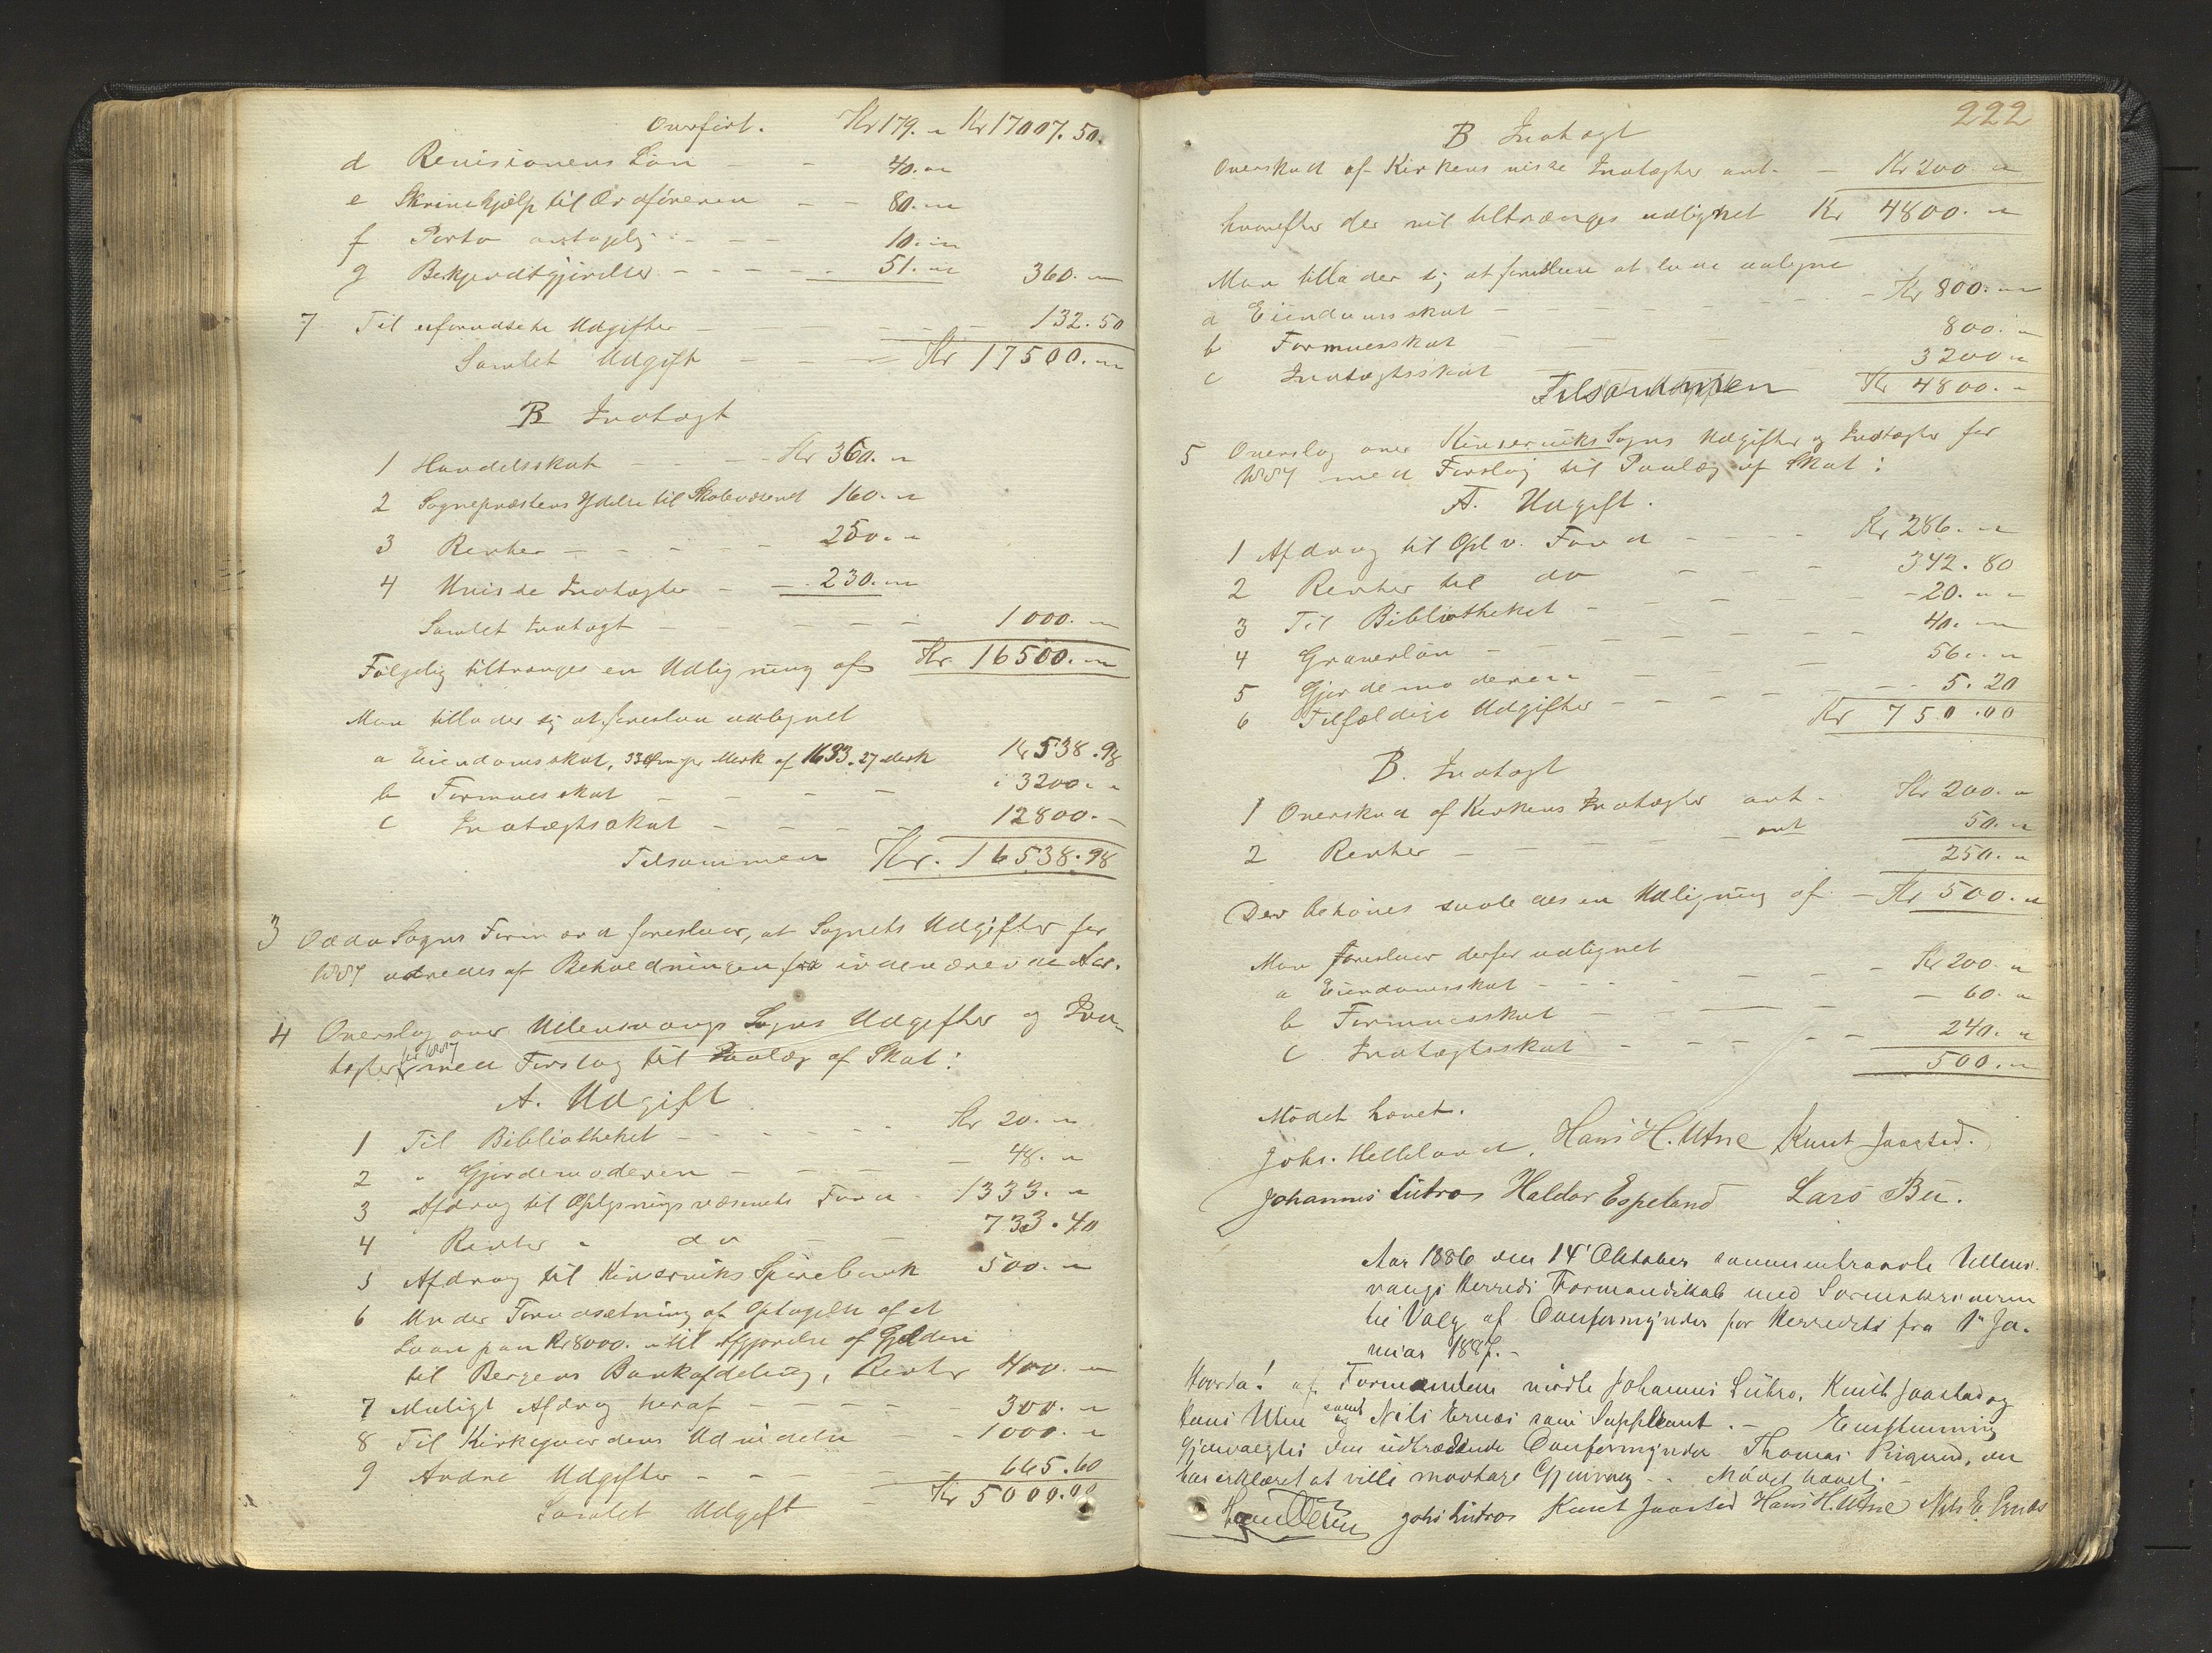 Overført. Kr 179. " Kr 17007. 50.
d Revisionens Løn - - 40. "
e Skrivehjælp til Ordføreren - - 80. "
f Porto antagelig - - - 10. "
g Bekjendtgjørelser - - - - - 51. " 360. "
7 Til uforudseete Udgifter - - - - 132. 50
Samlet Udgift - - - Kr 17500. "
B Indtægt
1 Handelsskat - - - - Kr 360. "
2 Sognepræstens Ydelse til Skolevæsenet 160. "
3 Renter - - - - - 250. "
4 Uvisse Indtægter - - 230. "
Samlet Indtægt - - - - 1000. "
Følgelig tiltrænges en Udligning af Kr. 16500. "
Man tillader sig at foreslaa udlignet
a Eiendomsskat, 33 Øre pr Mark af 1633. 27 Mark Kr 538. 98
b Formuesskat - - - - 3200. "
c Indtægtsskat - - - - 12800. -
Tilsammen Kr. 16538. 98
3 Odda Sogns Formænd foreslaar, at Sognets Udgifter for
1887 udredes af Beholdningen fra indeværende Aar.
4 Overslag over Ullensvangs Sogns Udgifter og Ind-
tægter for 1887 med Forslag til Paalæg af Skat:
A. Udgift
1 Til Bibliotheket - - - - - Kr 20. "
2 " Gjordemoderen - - - - 48. "
3 Afdrag til Oplysningsvæsenets Fond - 1333. "
4 Renter " do - - 733. 40
5 Afdrag til Kinserviks Sparebank 500. "
6 Under Forudsætning af Optagelse af et
Laan paa Kr 8000. " til Afgjørelse af Gjelden
til Bergens Bankafdeling, Renter 400. "
7 Muligt Afdrag heraf - - - - 300. "
8 Til Kirkegaardens Udvidelse - 1000. "
9 Andre Udgifter - - - - - 665. 60
Samlet Udgift - Kr 5000. 00
222
B Indtægt
Overskud af Kirkens visse Indtægter ant. - Kr 200. "
hvorefter der vil tiltrænges udlignet Kr 4800. "
Man tillader sig at foreslaa at lade udligne
a Eiendomsskat - - - - - - Kr 800. "
b Formuesskat - - 800. "
c Indtægtsskat 3200 "
Tilsammen Kr 4800. "
5 Overslag over Kinserviks Sogns Udgifter og Indtægter for
1887 med Forslag til Paalæg af Skat:
A. Udgift.
1 Afdrag til Opl. v. Fond - - - - Kr 286. "
2 Renter til do - - - 342. 80
3 Til Bibliotheket - - - - - - 20. "
4 Graverløn - - - - - - 40. "
5 Gjordemoderen - - - 56. "
6 Tilfældige Udgifter - - - - - 5. 20
Kr 750. 00
B. Indtægt
1 Overskud af Kirkens Indtægter ant. - Kr 200. "
2 Renter - - - - ant 50. "
250. "
Der behøves saaledes en Udligning af - Kr 500. "
Man foreslaar derfor udlignet
a Eiendomsskat - - - - - - Kr 200. "
b Formuesskat - - - - 60. "
c Indtægtsskat - - - - - - 240. "
500. "
Mødet hævet.
Johs. Helleland. Hans H. Utne Knut Jaastad.
Johannis Lutros Haldor Espeland Lars Bu.
Aar 1886 den 14' Oktober sammentraadte Ullens-
vangs Herreds Formandskab med Sorenskriveren
til Valg af Overformynder for Herredet fra 1' Ja-
nuar 1887. -
Hvorda! af Formændene mødte Johannis Lutro, Knut Jaastad og
Hans Utne samt Nils Ernæs som Suppleant. - Eenstemmig
gjenvalgtes den udtrædende Overformynder Thomas, der
har erklæret at ville modtage Gjenvalg. - Mødet hævet. -
Johs Lutros Knut Jaastad Hans H. Utne Nils E. Ernæs